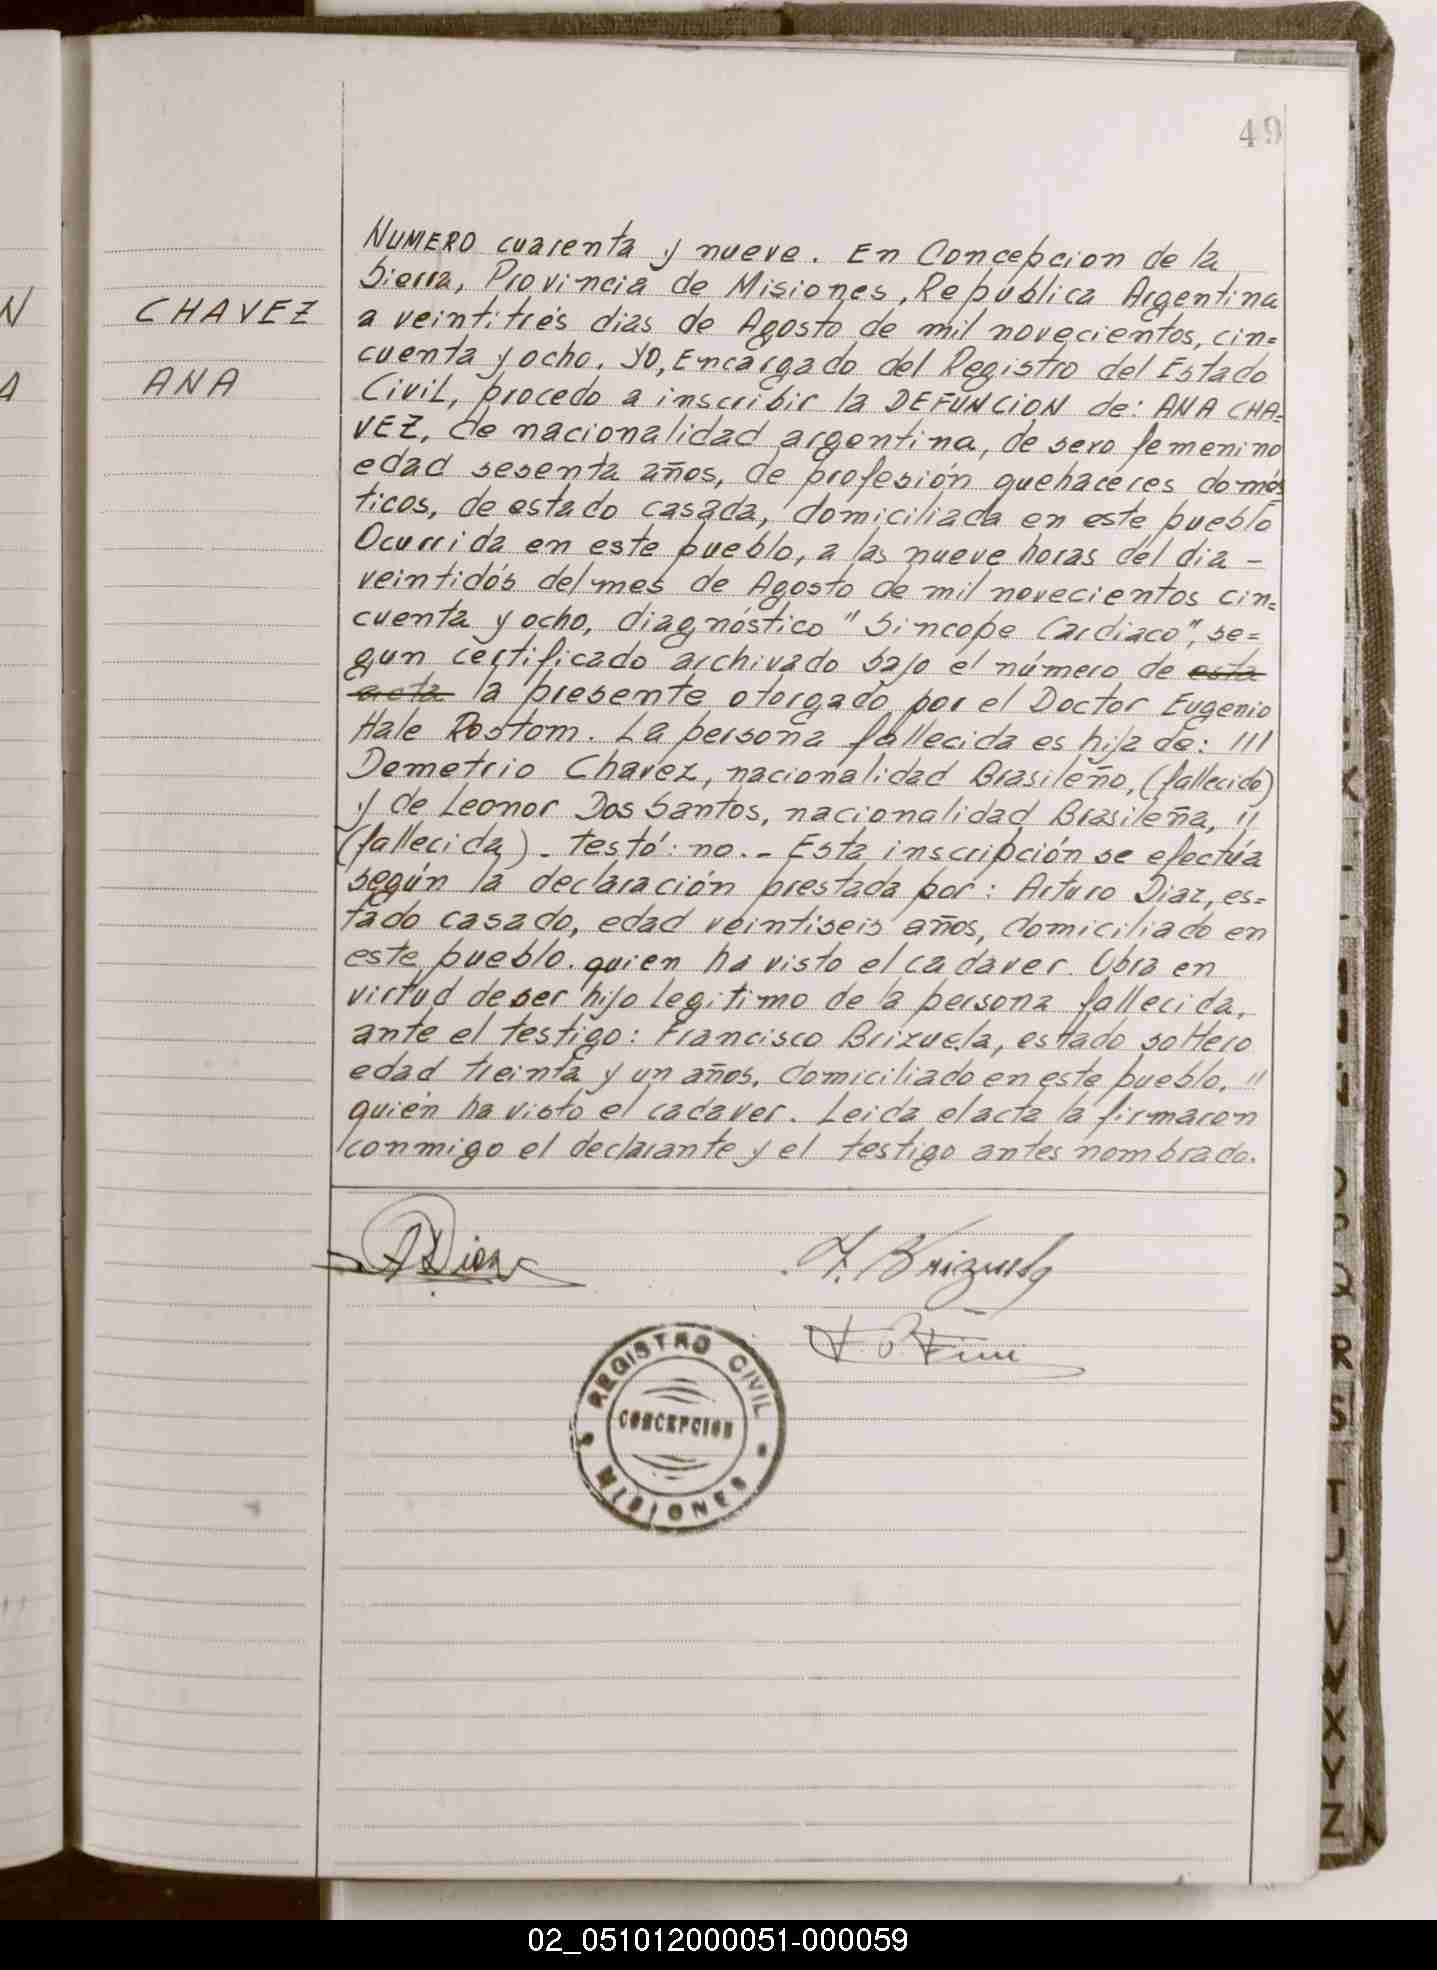 49
N
A
CHAVEZ
ANA
NUMERO cuarenta y nueve. En Concepcion de la
Sierra, Provincia de Misiones, Republica Argentina
a veintitrés dias de Agosto de mil novecientos, cin=
cuenta y ocho. Yo, Encargado del Registro del Estado
Civil, procedo a inscribir la DEFUNCION de: ANA CHA=
VEZ, de nacionalidad argentina, de sexo femenino
edad sesenta años, de profesión quehaceres domés
ticos, de estado casada, domiciliada en este pueblo
Ocurrida en este pueblo, a las nueve horas del dia -
veintidós del mes de Agosto de mil novecientos cin=
cuenta y ocho, diagnóstico "Sincope Cardiaco", se=
gun certificado archivado bajo el número de esta
acta la presente otorgado por el Doctor Eugenio
Hale Rostom. La persona fallecida es hija de: ///
Demetrio Chavez, nacionalidad Brasileño, (fallecido)
y de Leonor Dos Santos, nacionalidad Brasileña, //
(fallecida)_ testó: no._ Esta inscripción se efectúa
según la declaración prestada por: Arturo Diaz, es=
tado casado, edad veintiseis años, domiciliado en
este pueblo. quien ha visto el cadaver. Obra en
virtud de ser hijo legitimo de la persona fallecida,
ante el testigo: Francisco Brizuela, estado soltero
edad treinta y un años, domiciliado en este pueblo, //
quién ha visto el cadaver. Leida el acta la firmaron
conmigo el declarante y el testigo antes nombrado.
A Diaz
F. Brizuela
REGISTRO CIVIL
CONCEPCION
MISIONES
R
S
T
U
V
W
X
Y
Z
02_051012000051-000059